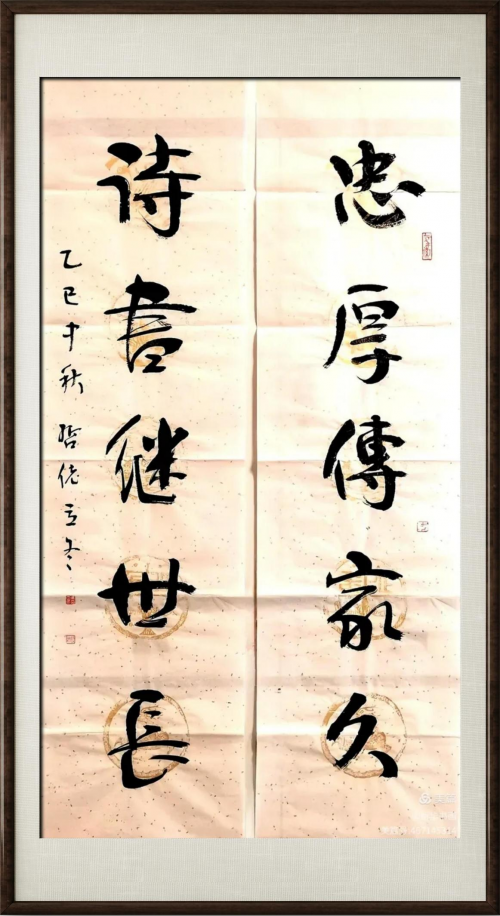 忠厚傳家久
詩書继世長
乙巳中秋